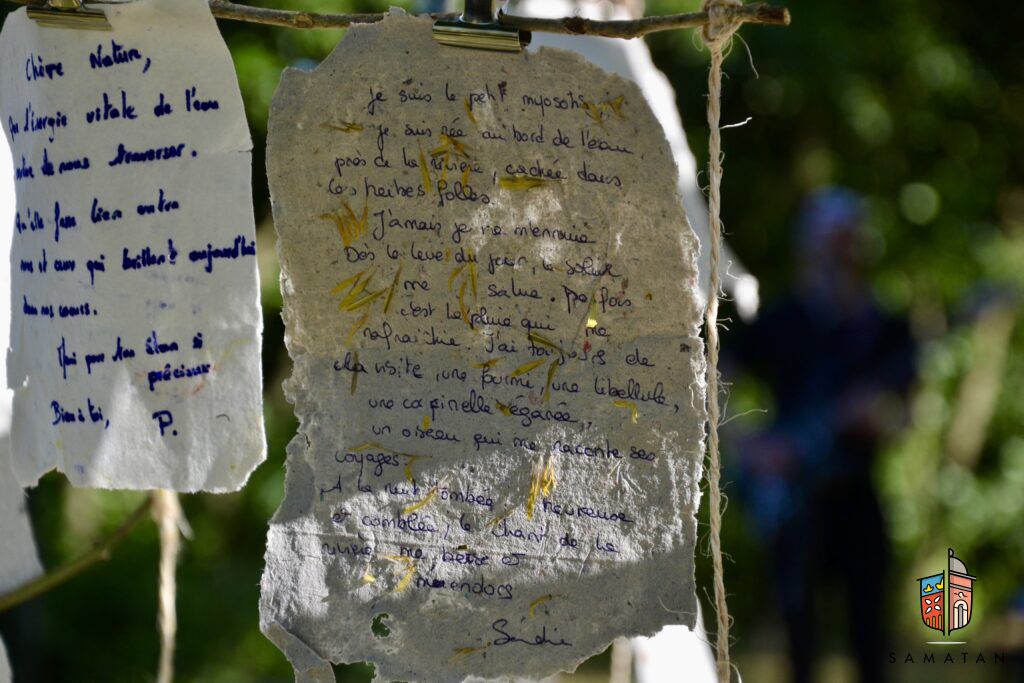 Chère Nature,
l'énergie vitale de l'eau
de nous traverser.
Qu'elle fasse lien entre
nous et ceux qui brillent aujourd'hui
dans nos cœurs.
Merci pour ton élan si
précieux
Bien à toi, P.
Je suis le petit myosotis,
je suis née au bord de l'eau,
près de la rivière, cachée dans
les herbes folles
Jamais je ne m'ennuie
Dès le levé du jour, le soleil
me salue. Parfois
c'est la pluie qui me
rafraichie. J'ai toujours de
la visite, une fourmi, une libellule,
une coccinelle égarée,
un oiseau qui me raconte ses
voyages.
A la nuit tombée, heureuse
et comblée, le chant de la
rivière me berce et
m'endors
Sandie
SAMATAN